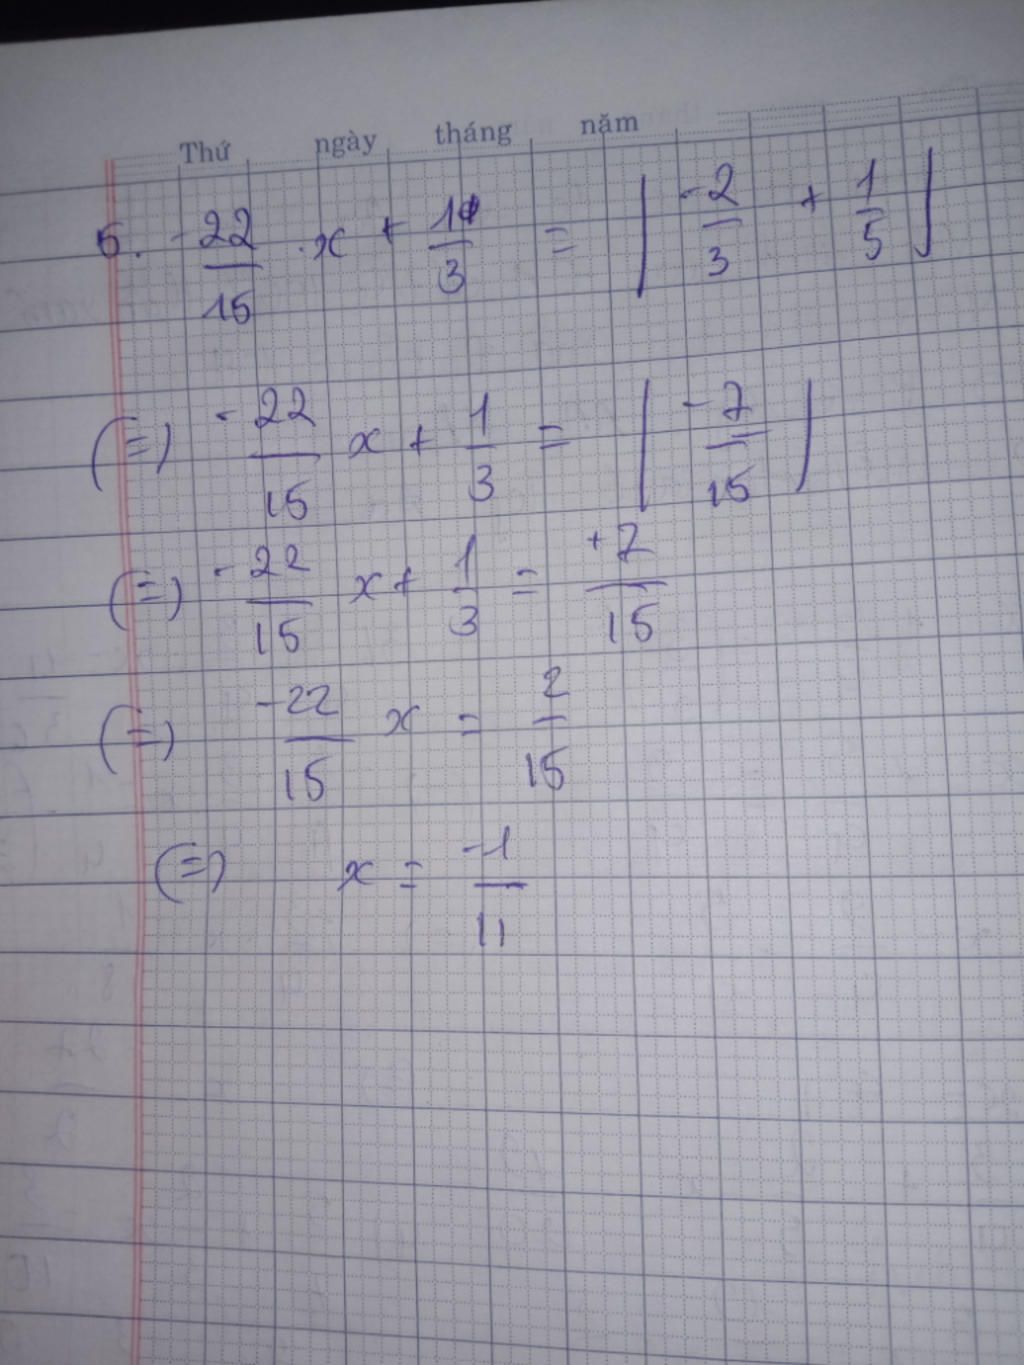 Thứ ngày tháng năm
5. -22/15 .x + 1/3 = | -2/3 + 1/5 |
(=) -22/15 x + 1/3 = | -7/15 |
(=) -22/15 x + 1/3 = +7/15
(=) -22/15 x = 2/15
(=) x = -1/11